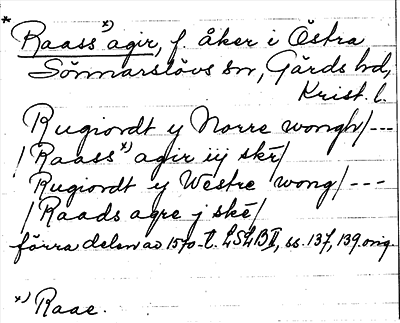 * Raass *) agir, f. åker i Östra
Sönnarslövs sn, Gärds hd,
Krist. l.
Rugiordt y Norre wongh/---
/Raass *) agir iij ske/
Rugiordt y Westre wong/---
/Raads agre j ske/
förra delen av 1570-t. LSLB II, ss. 137, 139 orig.
*) Raae.